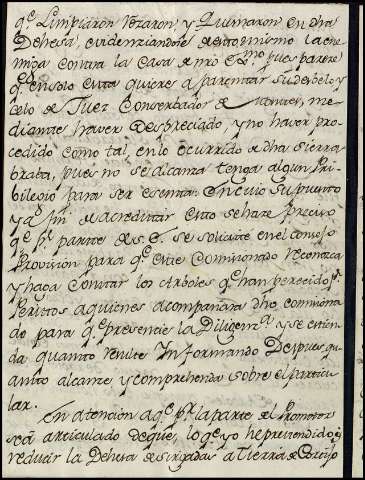 qe. Limpiaron Rozaron y Quemaron en dha
Dehesa, evidenciandose de esto mismo la ene-
miga contra la Casa de nro Exmo. pues parece
qe. en solo esta quiere aparentar su desvelo y
celo de Juez Conservador de Montes, me-
diante haver despreciado, y no haver pro-
cedido como tal en lo ocurrido de dha sierra
brava, pues no se alcanza tenga algun Pri-
bilegio para ser esenta: En cuio supuesto
y a fin de acreditar esto se hace preciso
qe. pr. parte de S. E. se solicite en el Consejo
Provision para qe. este Comisionado reconozca
y haga contar los Arboles qe. han perecido pr.
Peritos a quienes acompañara dho comisiona-
do para qe. presencie la Diligencia y se estien-
da quanto resulte Informando despues qu-
anto alcance y comprehenda sobre el particu-
lar.
En atencion a qe. pr. la parte del Promotor
se á articulado de que, lo qe. yo he pretendido es
reducir la Dehesa de a tierra de Cortijo